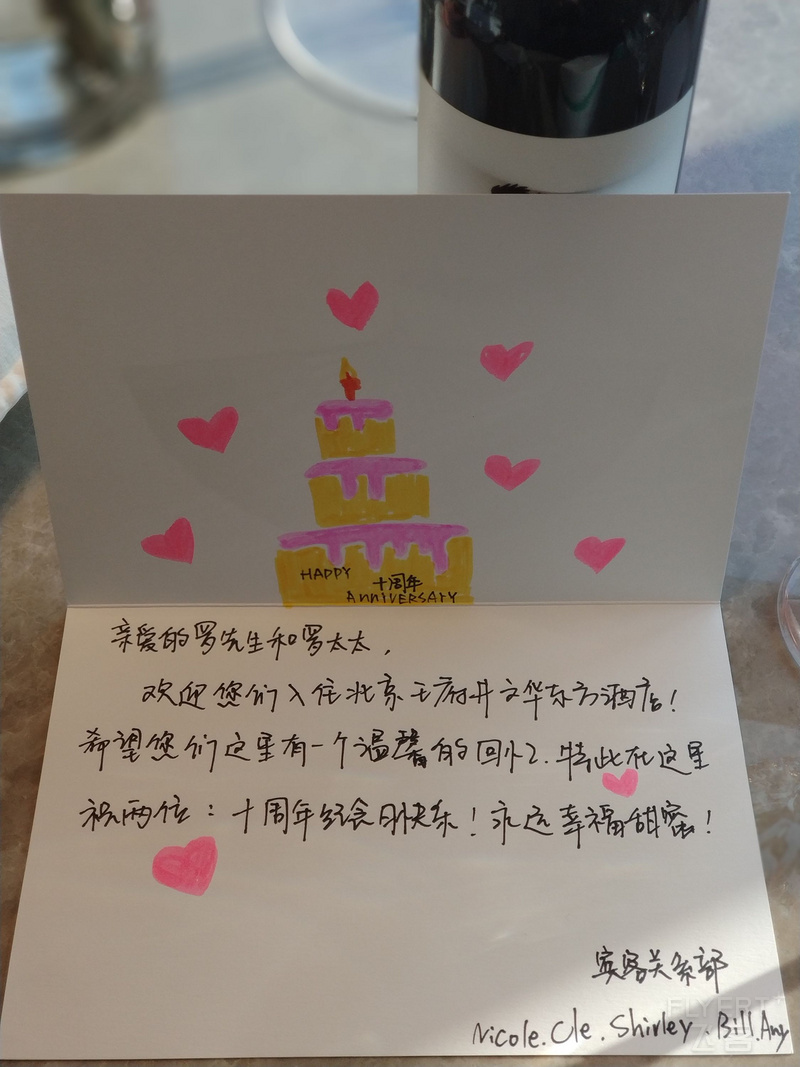 HAPPY
十周年
ANNIVERSARY
亲爱的罗先生和罗太太，
欢迎您们入住北京王府井文华东方酒店！
希望您们这里有一个温馨的回忆.特此在这里
祝两位：十周年纪念日快乐！永远幸福甜蜜！
宾客关系部
Nicole.Cle.Shirley.Bill.Amy
FLYERT